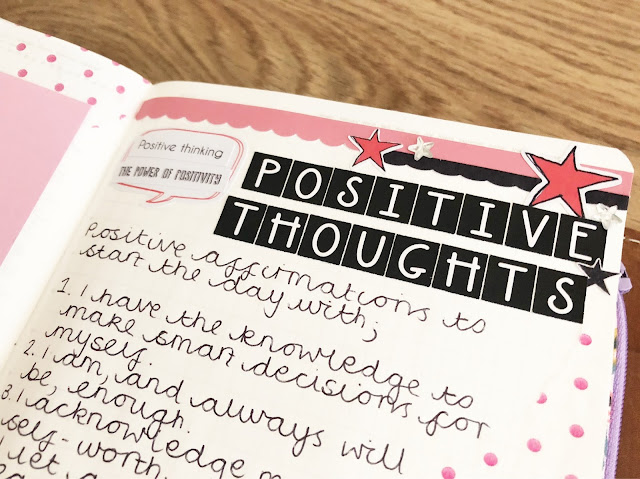 Positive thinking
THE POWER OF POSITIVITY
POSITIVE
THOUGHTS
Positive affirmations to
start the day with;
1. I have the knowledge to
make smart decisions for
myself.
2. I am, and always will
be, enough.
3. I acknowledge
self-worth.
I let